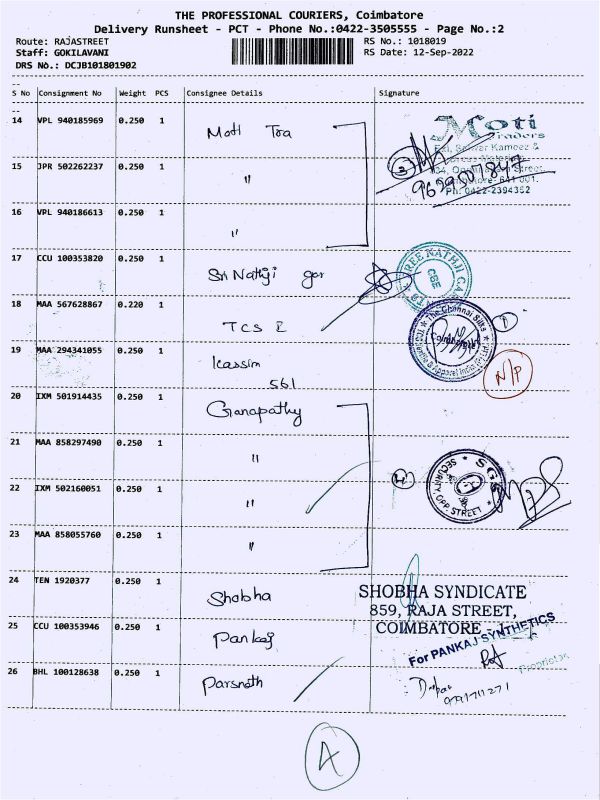 THE PROFESSIONAL COURIERS, Coimbatore
Delivery Runsheet - PCT - Phone No.:0422-3505555 - Page No.:2
Route: RAJASTREET
RS No.: 1018019
Staff: GOKILAVANI
RS Date: 12-Sep-2022
DRS No.: DCJB101801902
S No Consignment No Weight PCS Consignee Details Signature
14 VPL 940185969 0.250 1 Moti Tra
Moti
Traders
15 JPR 502262237 0.250 1 "
3
Street
641 001.
Ph: 0422-2394352
16 VPL 940186613 0.250 1 "
17 CCU 100353820 0.250 1 Sri Nathji gar
SHREE NATHJI
CBE
18 MAA 567628867 0.220 1 TCS E
The Chennai Silks
Coimbatore
1
19 MAA 294341055 0.250 1 Kassim
561
N/P
20 IXM 501914435 0.250 1 Ganapathy
21 MAA 858297490 0.250 1 "
22 IXM 502160051 0.250 1 "
4
SGS
SECURITY OPP STREET
23 MAA 858055760 0.250 1 "
24 TEN 1920377 0.250 1 Shobha
SHOBHA SYNDICATE
859, RAJA STREET,
COIMBATORE - 
25 CCU 100353946 0.250 1 Pankaj
For PANKAJ SYNTHETICS
Proprietor
26 BHL 100128638 0.250 1 Parsnath
A